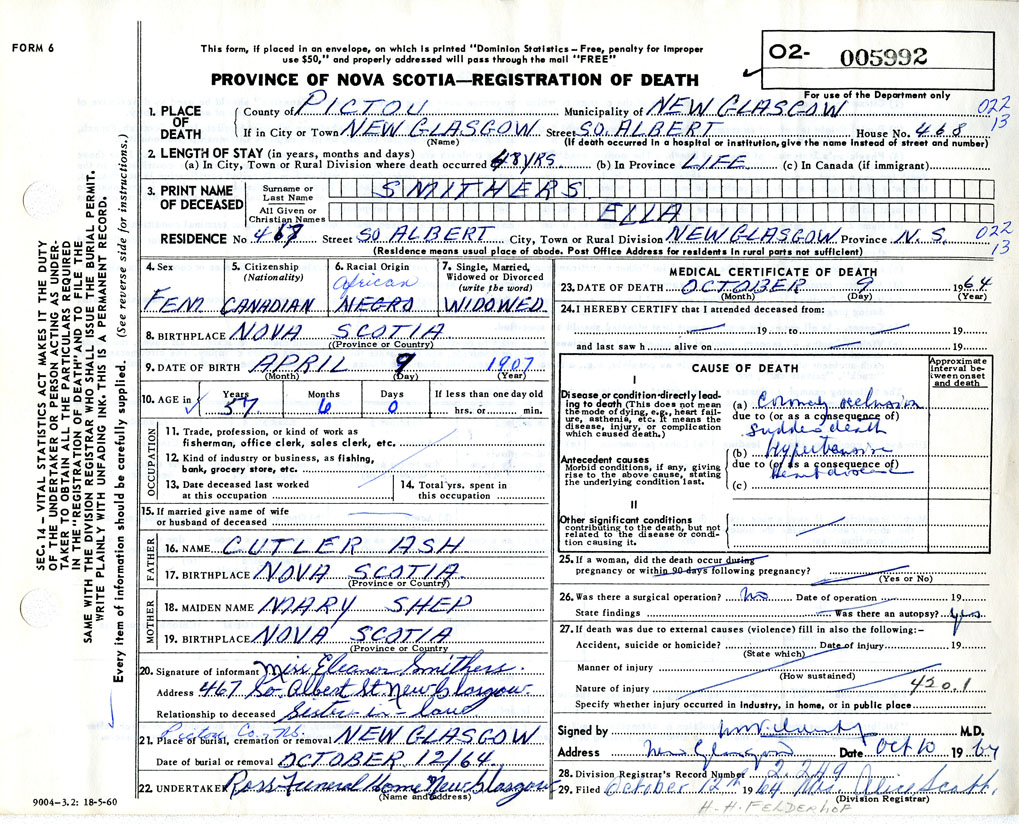 FORM 6
This form, if placed in an envelope, on which is printed "Dominion Statistics—Free, penalty for improper
use $50," and properly addressed will pass through the mail "FREE"
PROVINCE OF NOVA SCOTIA—REGISTRATION OF DEATH
O2- 005992
For use of the Department only
SEC. 14 – VITAL STATISTICS ACT MAKES IT THE DUTY
OF THE UNDERTAKER OR PERSON ACTING AS UNDER-
TAKER TO OBTAIN ALL THE PARTICULARS REQUIRED
IN THE "REGISTRATION OF DEATH" AND TO FILE THE
SAME WITH THE DIVISION REGISTRAR WHO SHALL ISSUE THE BURIAL PERMIT.
WRITE PLAINLY WITH UNFADING INK. THIS IS A PERMANENT RECORD.
Every item of information should be carefully supplied. (See reverse side for instructions.)
1. PLACE OF DEATH
County of PICTOU Municipality of NEW GLASGOW 022
13
If in City or Town NEW GLASGOW Street SO. ALBERT House No. 468
(Name) (If death occurred in a hospital or institution, give the name instead of street and number)
2. LENGTH OF STAY (in years, months and days)
(a) In City, Town or Rural Division where death occurred 48 YRS. (b) In Province LIFE (c) In Canada (if immigrant)
3. PRINT NAME OF DECEASED
Surname or Last Name SMITHERS
All Given or Christian Names ELLA
RESIDENCE No. 467 Street SO ALBERT City, Town or Rural Division NEW GLASGOW Province N. S. 022
13
(Residence means usual place of abode. Post Office Address for residents in rural parts not sufficient)
4. Sex
FEM
5. Citizenship
(Nationality)
CANADIAN
6. Racial Origin
African
NEGRO
7. Single, Married,
Widowed or Divorced
(write the word)
WIDOWED
8. BIRTHPLACE NOVA SCOTIA
(Province or Country)
9. DATE OF BIRTH APRIL 9 1907
(Month) (Day) (Year)
10. AGE in Years Months Days If less than one day old
57 6 0 hrs. or min.
OCCUPATION
11. Trade, profession, or kind of work as
fisherman, office clerk, sales clerk, etc.
12. Kind of industry or business, as fishing,
bank, grocery store, etc.
13. Date deceased last worked
at this occupation
14. Total yrs. spent in
this occupation
15. If married give name of wife
or husband of deceased
FATHER
16. NAME CUTLER ASH
17. BIRTHPLACE NOVA SCOTIA
(Province or Country)
MOTHER
18. MAIDEN NAME MARY SHEP
19. BIRTHPLACE NOVA SCOTIA
(Province or Country
20. Signature of informant Miss Eleanor Smithers.
Address 467 So. Albert St. New Glasgow
Relationship to deceased Sister-in-law
Pictou Co., N.S.
21. Place of burial, cremation or removal NEW GLASGOW
Date of burial or removal OCTOBER 12/64
22. UNDERTAKER Ross Funeral Home New Glasgow
(Name and address)
9004—3.2: 18-5-60
MEDICAL CERTIFICATE OF DEATH
23. DATE OF DEATH OCTOBER 9 1964
(Month) (Day) (Year)
24. I HEREBY CERTIFY that I attended deceased from:
19 to 19
and last saw h alive on 19
CAUSE OF DEATH
Approximate
interval be-
tween onset
and death
I
Disease or condition directly lead-
ing to death (This does not mean
the mode of dying, e.g., heart fail-
ure, asthenia, etc. It means the
disease, injury, or complication
which caused death.)
(a) Coronary occlusion
due to (or as a consequence of)
Sudden death
Antecedent causes
Morbid conditions, if any, giving
rise to the above cause, stating
the underlying condition last.
(b) Hypertensive
due to (or as a consequence of)
Heart disease
(c)
II
Other significant conditions
contributing to the death, but not
related to the disease or condi-
tion causing it.
25. If a woman, did the death occur during
pregnancy or within 90 days following pregnancy?
(Yes or No)
26. Was there a surgical operation? No Date of operation 19
State findings Was there an autopsy? yes
27. If death was due to external causes (violence) fill in also the following:—
Accident, suicide or homicide? Date of injury 19
(State which)
Manner of injury
(How sustained)
Nature of injury 420.1
Specify whether injury occurred in industry, in home, or in public place
Signed by M.D.
Address New Glasgow Date Oct 10 1964
28. Division Registrar's Record Number 2249
29. Filed October 12th 1964 Mrs. Alice Scott.
(Division Registrar)
H. H. FELDERHOF